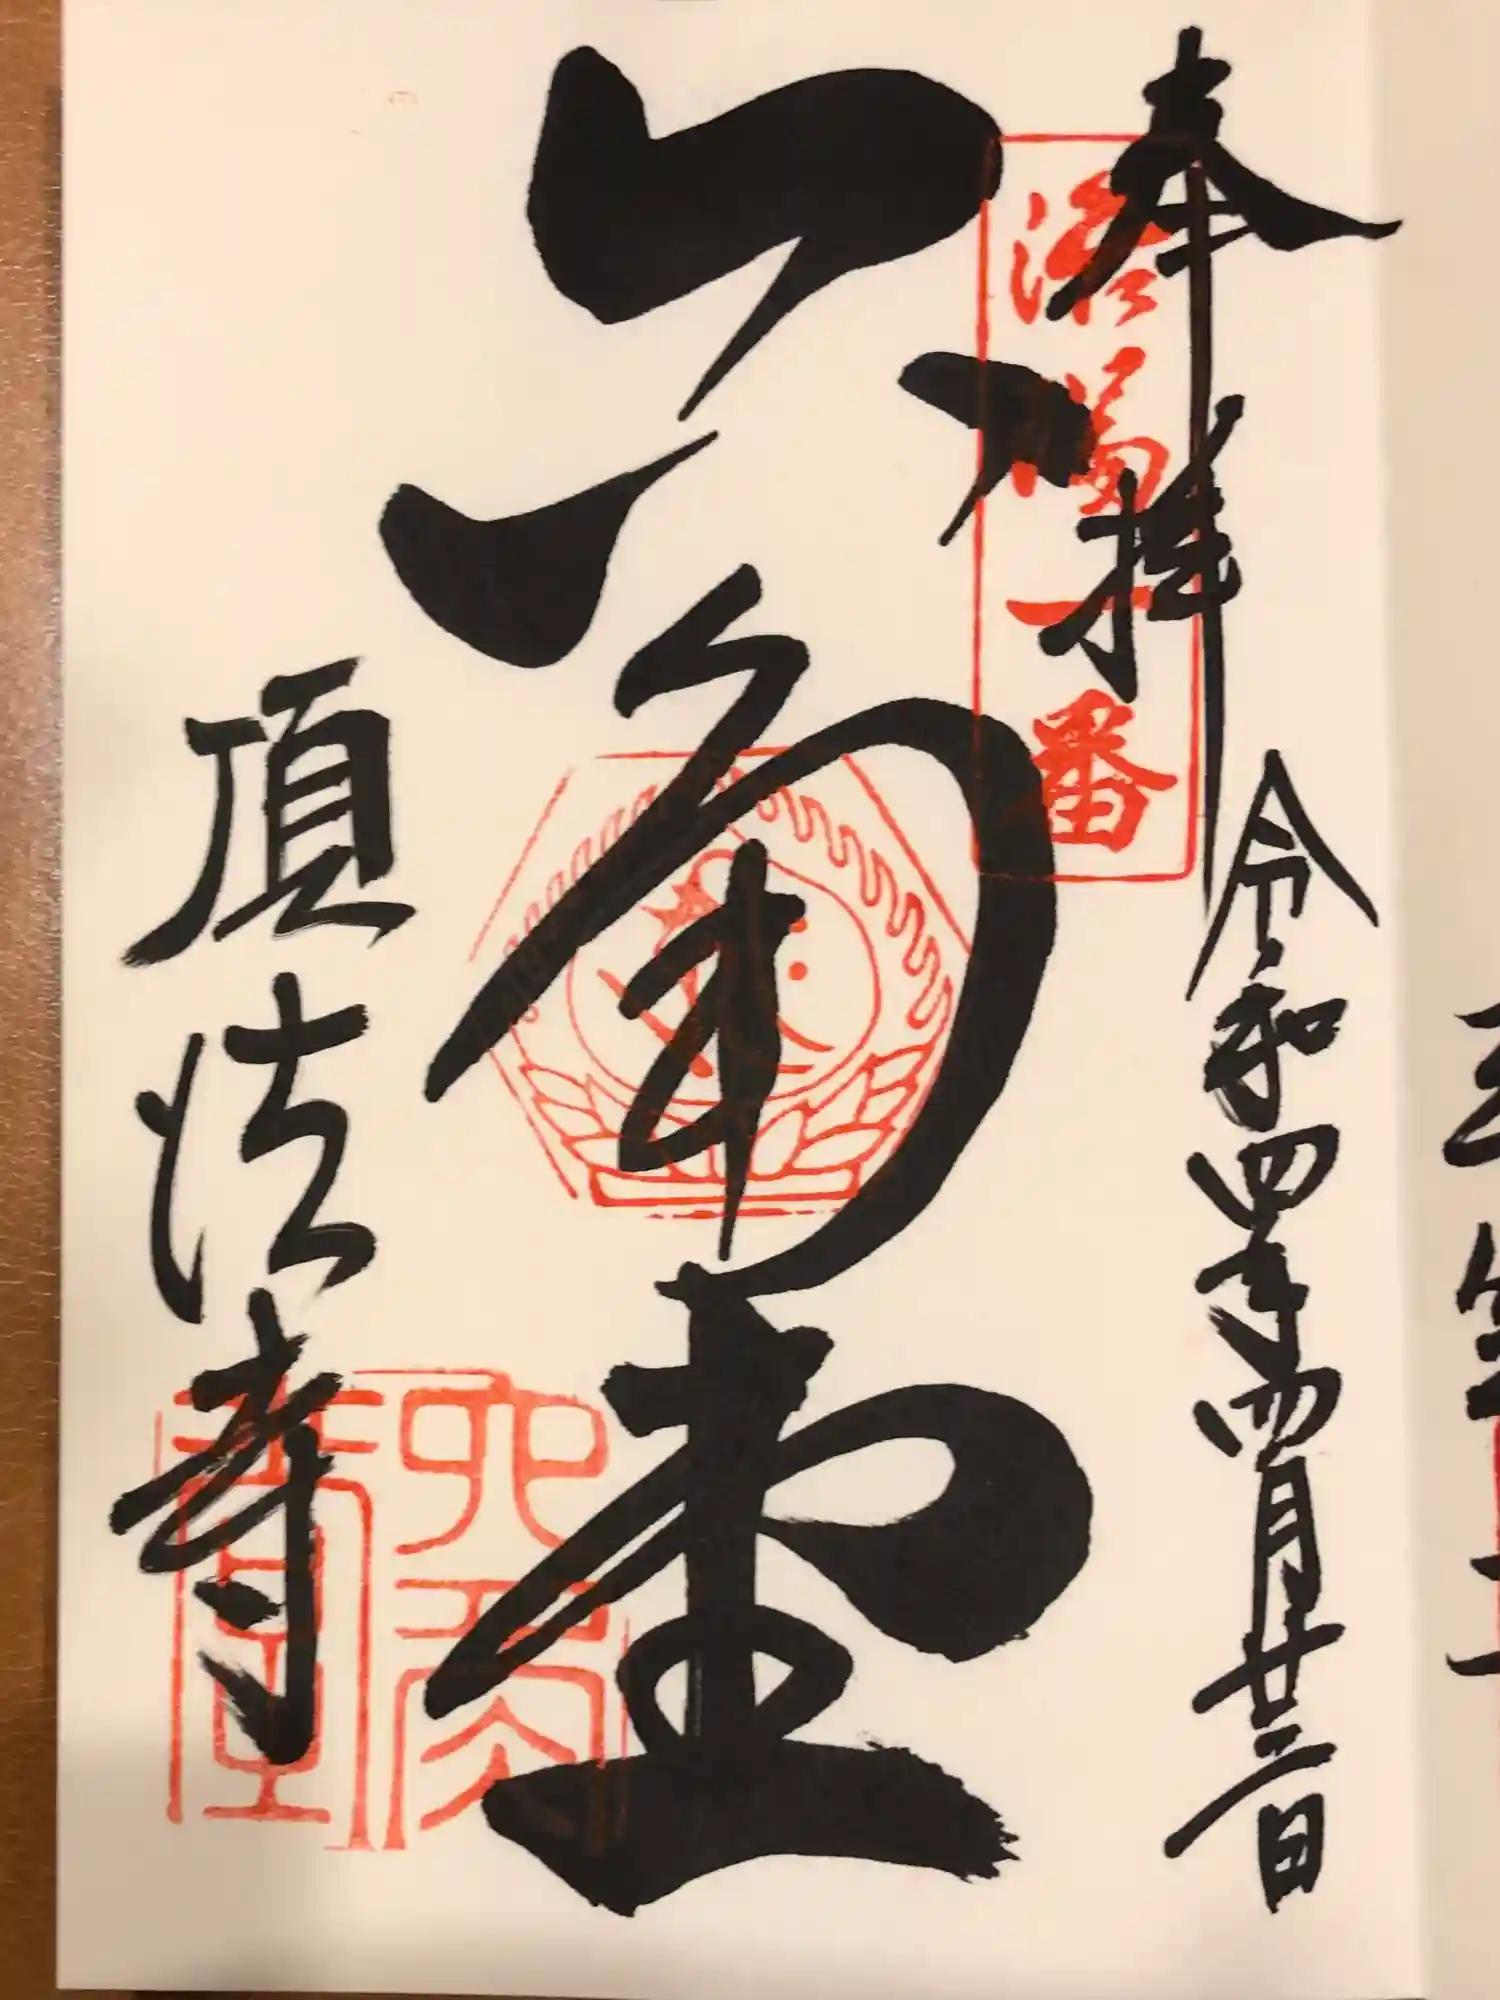 奉拝
令和四年四月廿三日
洛陽一番
六角堂
頂法寺
六角堂